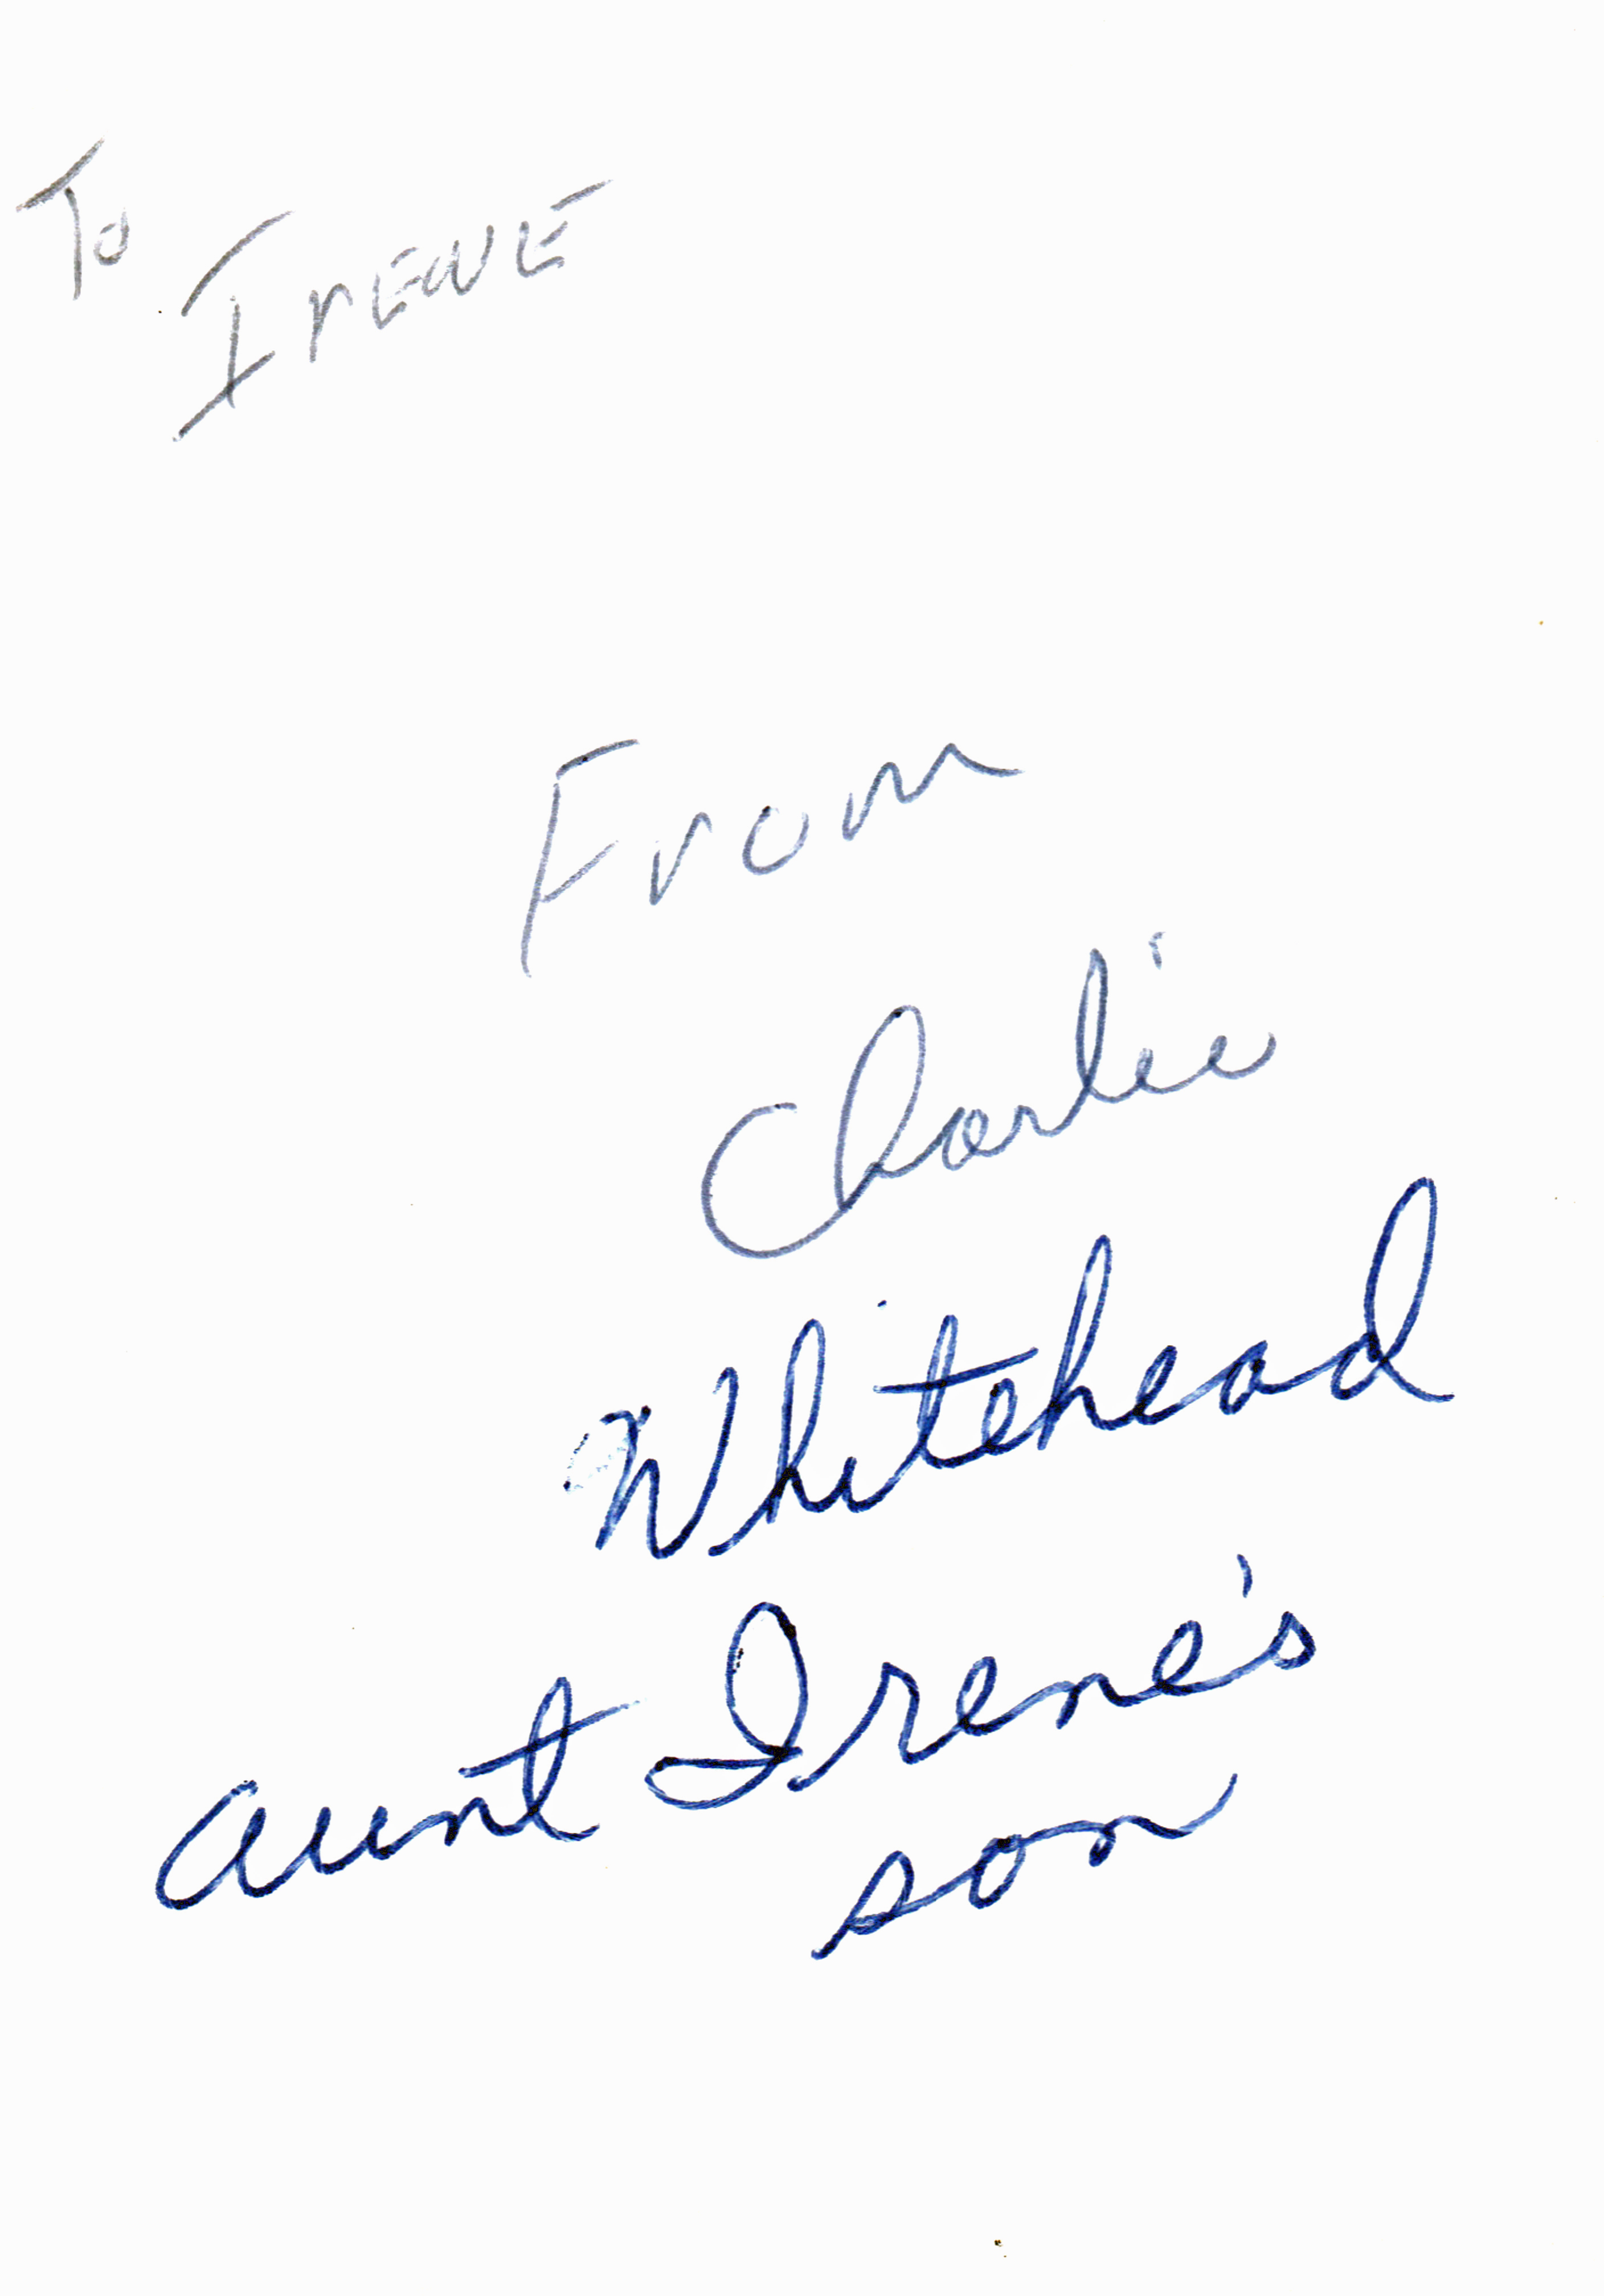 To
IRENE
From
Charlie
Whitehead
Aunt Irene's
son